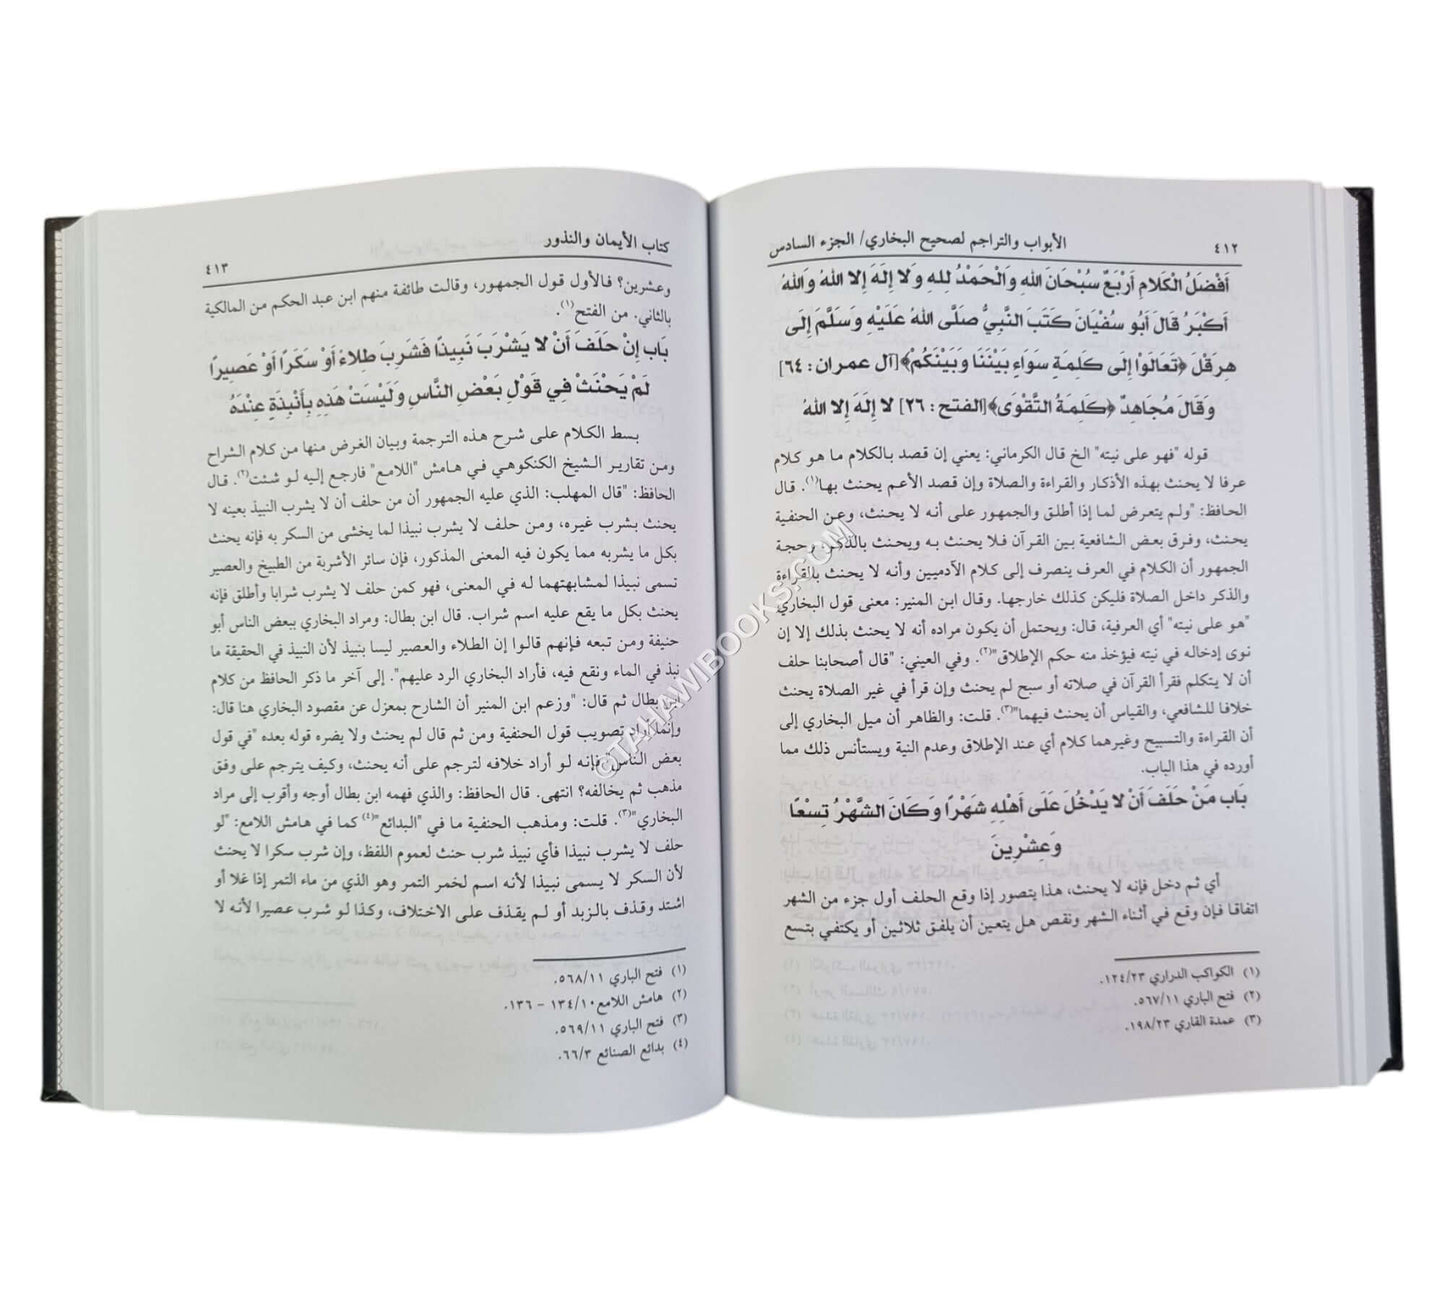 ٤١٢ الأبواب والتراجم لصحيح البخاري/ الجزء السادس
أَفْضَلُ الْكَلَامِ أَرْبَعٌ سُبْحَانَ اللهِ وَالْحَمْدُ لِلهِ وَلَا إِلَهَ إِلَّا اللهُ وَاللهُ
أَكْبَرُ قَالَ أَبُو سُفْيَانَ كَتَبَ النَّبِيُّ صَلَّى اللهُ عَلَيْهِ وَسَلَّمَ إِلَى
هِرَقْلَ ﴿تَعَالَوْا إِلَى كَلِمَةٍ سَوَاءٍ بَيْنَنَا وَبَيْنَكُمْ﴾[آل عمران: ٦٤]
وَقَالَ مُجَاهِدٌ ﴿كَلِمَةُ التَّقْوَى﴾[الفتح: ٢٦] لَا إِلَهَ إِلَّا اللهُ
قوله "فهو على نيته" الخ قال الكرماني: يعني إن قصد بالكلام ما هو كلام
عرفا لا يحنث بهذه الأذكار والقراءة والصلاة وإن قصد الأعم يحنث بها(١). قال
الحافظ: "ولم يتعرض لما إذا أطلق والجمهور على أنه لا يحنث، وعن الحنفية
يحنث، وفرق بعض الشافعية بين القرآن فلا يحنث به ويحنث بالذكر، وحجة
الجمهور أن الكلام في العرف ينصرف إلى كلام الآدميين وأنه لا يحنث بالقراءة
والذكر داخل الصلاة فليكن كذلك خارجها. وقال ابن المنير: معنى قول البخاري
"هو على نيته" أي العرفية، قال: ويحتمل أن يكون مراده أنه لا يحنث بذلك إلا إن
نوى إدخاله في نيته فيؤخذ منه حكم الإطلاق"(٢). وفي العيني: "قال أصحابنا حلف
أن لا يتكلم فقرأ القرآن في صلاته أو سبح لم يحنث وإن قرأ في غير الصلاة يحنث
خلافا للشافعي، والقياس أن يحنث فيهما"(٣). قلت: والظاهر أن ميل البخاري إلى
أن القراءة والتسبيح وغيرهما كلام أي عند الإطلاق وعدم النية ويستأنس ذلك مما
أورده في هذا الباب.
بَاب مَنْ حَلَفَ أَنْ لَا يَدْخُلَ عَلَى أَهْلِهِ شَهْرًا وَكَانَ الشَّهْرُ تِسْعًا
وَعِشْرِينَ
أي ثم دخل فإنه لا يحنث، هذا يتصور إذا وقع الحلف أول جزء من الشهر
اتفاقا فإن وقع في أثناء الشهر ونقص هل يتعين أن يلفق ثلاثين أو يكتفي بتسع
(١) الكواكب الدراري ١٢٤/٢٣.
(٢) فتح الباري ٥٦٧/١١.
(٣) عمدة القاري ١٩٨/٢٣.
كتاب الأيمان والنذور ٤١٣
وعشرين؟ فالأول قول الجمهور، وقالت طائفة منهم ابن عبد الحكم من المالكية
بالثاني. من الفتح(١).
بَاب إِنْ حَلَفَ أَنْ لَا يَشْرَبَ نَبِيذًا فَشَرِبَ طِلَاءً أَوْ سَكَرًا أَوْ عَصِيرًا
لَمْ يَحْنَثْ فِي قَوْلِ بَعْضِ النَّاسِ وَلَيْسَتْ هَذِهِ بِأَنْبِذَةٍ عِنْدَهُ
بسط الكلام على شرح هذه الترجمة وبيان الغرض منها من كلام الشراح
ومن تقارير الشيخ الكنكوهي في هامش "اللامع" فارجع إليه لو شئت(٢). قال
الحافظ: "قال المهلب: الذي عليه الجمهور أن من حلف أن لا يشرب النبيذ بعينه لا
يحنث بشرب غيره، ومن حلف لا يشرب نبيذا لما يخشى من السكر به فإنه يحنث
بكل ما يشربه مما يكون فيه المعنى المذكور، فإن سائر الأشربة من الطبيخ والعصير
تسمى نبيذا لمشابهتهما له في المعنى، فهو كمن حلف لا يشرب شرابا وأطلق فإنه
يحنث بكل ما يقع عليه اسم شراب. قال ابن بطال: ومراد البخاري ببعض الناس أبو
حنيفة ومن تبعه فإنهم قالوا إن الطلاء والعصير ليسا بنبيذ لأن النبيذ في الحقيقة ما
نبذ في الماء ونقع فيه، فأراد البخاري الرد عليهم". إلى آخر ما ذكر الحافظ من كلام
ابن بطال ثم قال: "وزعم ابن المنير أن الشارح بمعزل عن مقصود البخاري هنا قال:
وإنما أراد تصويب قول الحنفية ومن ثم قال لم يحنث ولا يضره قوله بعده "في قول
بعض الناس" فإنه لو أراد خلافه لترجم على أنه يحنث، وكيف يترجم على وفق
مذهب ثم يخالفه؟ انتهى. قال الحافظ: والذي فهمه ابن بطال أوجه وأقرب إلى مراد
البخاري"(٣). قلت: ومذهب الحنفية ما في "البدائع"(٤) كما في هامش اللامع: "لو
حلف لا يشرب نبيذا فأي نبيذ شرب حنث لعموم اللفظ، وإن شرب سكرا لا يحنث
لأن السكر لا يسمى نبيذا لأنه اسم لخمر التمر وهو الذي من ماء التمر إذا غلا أو
اشتد وقذف بالزبد أو لم يقذف على الاختلاف، وكذا لو شرب عصيرا لأنه لا
(١) فتح الباري ٥٦٨/١١.
(٢) هامش اللامع١٣٤/١٠ – ١٣٦.
(٣) فتح الباري ٥٦٩/١١.
(٤) بدائع الصنائع ٦٦/٣.
©TAHAWIBOOKS.COM